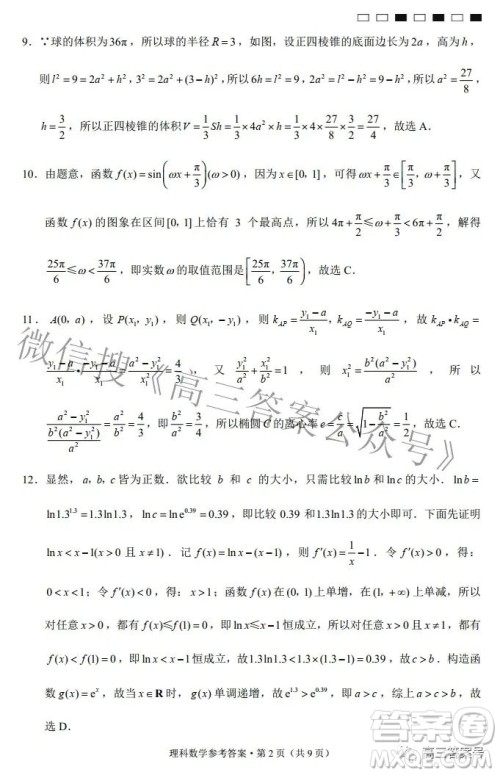 9. ∵球的体积为36π，所以球的半径 R=3，如图，设正四棱锥的底面边长为 2a，高为 h，
则 l²=9=2a²+h²，3²=2a²+(3−h)²，所以 6h=l²=9，2a²=l²−h²=9−h²，所以 a²=27/8，
h=3/2，所以正四棱锥的体积 V=1/3 Sh=1/3×4a²×h=1/3×4×27/8×3/2=27/4，故选 A．
10. 由题意，函数 f(x)=sin(ωx+π/3)(ω>0)，因为 x∈[0，1]，可得 ωx+π/3∈[π/3，ω+π/3]，又
函数 f(x) 的图象在区间[0，1]上恰有 3 个最高点，所以 4π+π/2≤ω+π/3<6π+π/2，解得
25π/6≤ω<37π/6，即实数 ω 的取值范围是[25π/6，37π/6)，故选 C．
11. A(0，a)，设 P(x₁，y₁)，则 Q(x₁，−y₁)，则 k_AP=(y₁−a)/x₁，k_AQ=(−y₁−a)/x₁，故 k_AP•k_AQ=
(y₁−a)/x₁•(−y₁−a)/x₁=(a²−y₁²)/x₁²=4/3，又 y₁²/a²+x₁²/b²=1，则 x₁²=b²(a²−y₁²)/a²，所以
(a²−y₁²)/(b²(a²−y₁²)/a²)=a²/b²=4/3，即 b²/a²=3/4，所以椭圆 C 的离心率 e=c/a=√(1−b²/a²)=1/2，故选 C．
12. 显然，a，b，c 皆为正数．欲比较 b 和 c 的大小，只需比较 ln b 和 ln c 的大小．ln b=
ln1.3^1.3=1.3ln1.3，ln c=ln e^0.39=0.39，即比较 0.39 和1.3ln1.3 的大小即可．下面先证明
ln x<x−1(x>0 且 x≠1)．记 f(x)=ln x−(x−1)，则 f′(x)=1/x−1．令 f′(x)>0，得：
0<x<1；令 f′(x)<0，得：x>1；函数 f(x) 在(0，1)上单增，在(1，+∞)上单减，所以
对任意 x>0，都有 f(x)≤f(1)=0，即 ln x≤x−1 恒成立，所以对任意 x>0 且 x≠1，都有
f(x)<f(1)=0，即 ln x<x−1 恒成立，故1.3ln1.3<1.3×(1.3−1)=0.39，故 c>b．构造函
数 g(x)=e^x，故当 x∈R 时，g(x) 单调递增，故 e^1.3>e^0.39，即 a>c，综上，a>c>b，故
选 D．
理科数学参考答案·第 2 页（共 9 页）
微信搜《高三答案公众号》
高三答案号